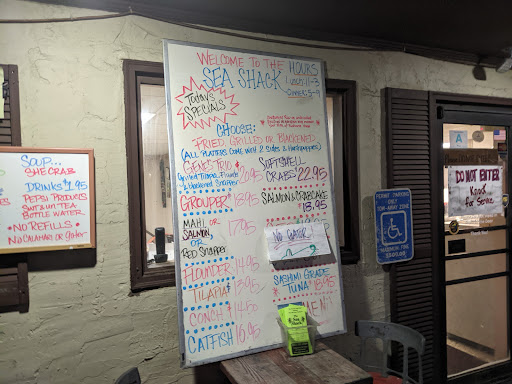 WELCOME TO THE
SEA SHACK
HOURS
LUNCH 11-3
DINNER 5-9
TODAYS
SPECIALS
CHOOSE:
FRIED, GRILLED OR BLACKENED
(ALL PLATTERS COME WITH 2 SIDES & HUSHPUPPIES)
GENE'S TRIO
& Blackened Snapper
SOFTSHELL
CRABS 22.95
GROUPER
18.95
SALMON & CRABCAKE
18.95
MAHI OR
SALMON
OR
RED SNAPPER
17.95
NO GATER
FLOUNDER 14.95
TILAPIA 13.95
CONCH 14.95
CATFISH 16.95
SASHIMI GRADE
TUNA $18.95
SOUP...
SHE CRAB
DRINKS $1.95
PEPSI PRODUCTS
SWT/UNSWT TEA
BOTTLE WATER
• NO REFILLS •
NO CALAMARI OR GATER
PERMIT PARKING
ONLY
TOW-AWAY ZONE
MAXIMUM FINE
DO NOT ENTER
Knock
For Service